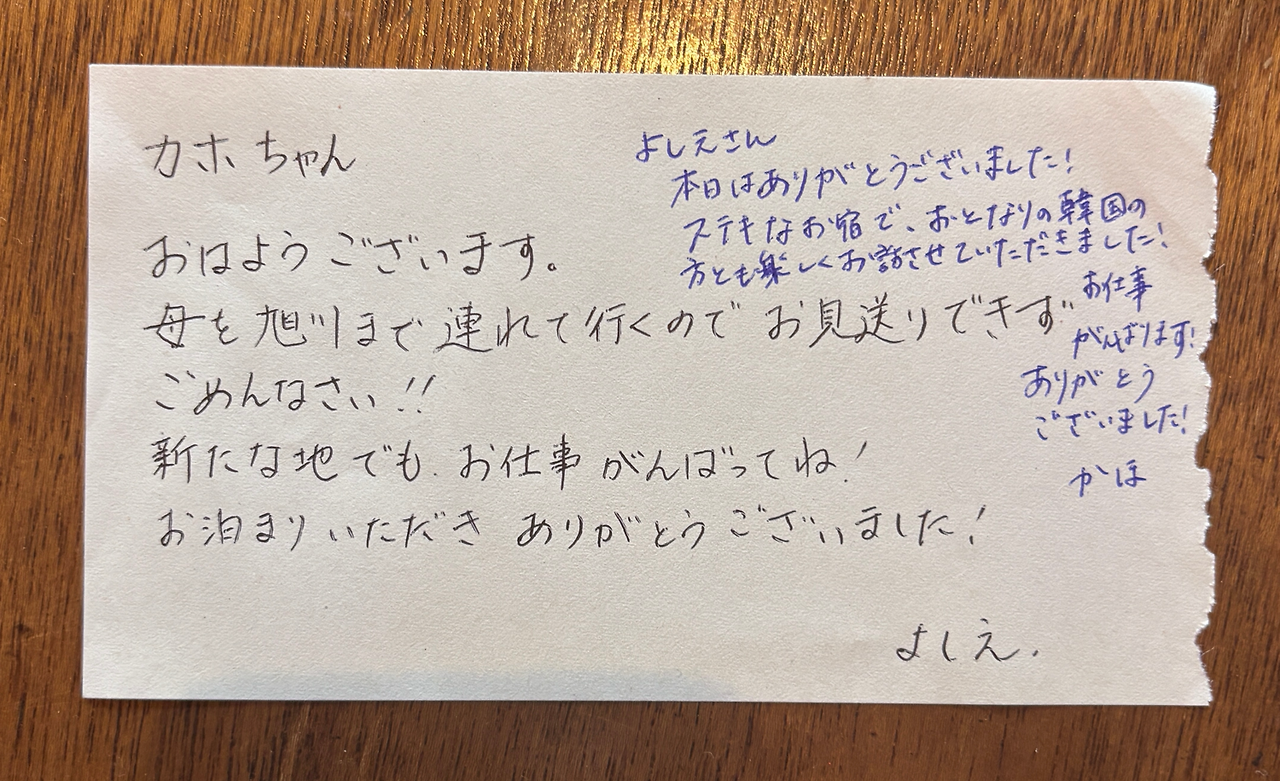 カホちゃん
おはようございます。
母を旭川まで連れて行くのでお見送りできず
ごめんなさい!!
新たな地でもお仕事がんばってね!
お泊まりいただきありがとうございました!
よしえ.
よしえさん
本日はありがとうございました!
ステキなお宿で、おとなりの韓国の
方とも楽しくお話させていただきました!
お仕事
がんばります!
ありがとう
ございました!
かほ